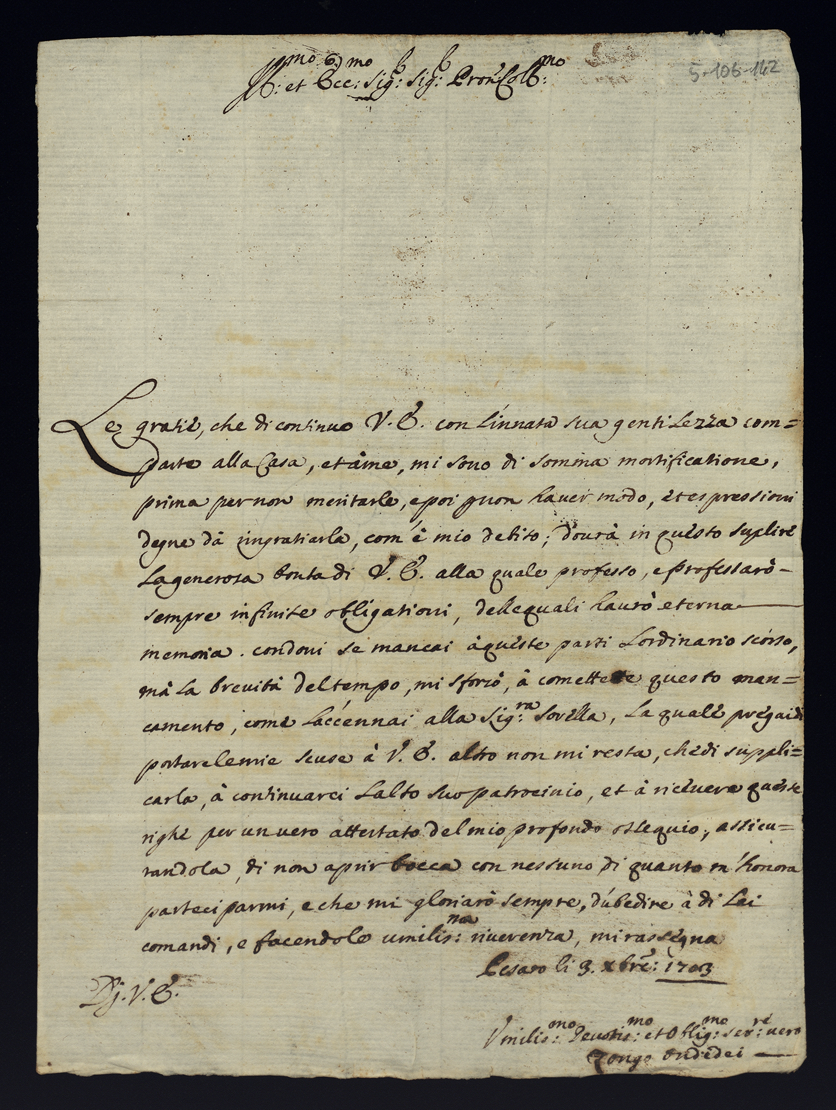 5-106-142
Ill:mo et Ecc:mo Sig:r Sig:r Pron Coll:mo
Le gratie, che di continuo V. E. con l'innata sua gentilezza com=
parte alla Casa, et à me, mi sono di somma mortificatione,
prima per non meritarle, e poi p non haver modo, et espressioni
degne dà ringratiarla, com' è mio debito; dourà in questo suplire
la generosa bontà di V. E. alla quale professo, e professarò
sempre infinite obligationi, delle quali haurò eterna
memoria. condoni se mancai à queste parti l'ordinario scorso,
mà la brevità del tempo, mi sforzò, à comettere questo man=
camento, come l'accennai alla Sig:ra Sorella, la quale pregai di
portare le mie scuse à V. E. altro non mi resta, che di suppli=
carla, à continuarci l'alto suo patrocinio, et à ricevere queste
righe per un vero attestato del mio profondo ossequio, assicu=
randola, di non aprir bocca con nessuno di quanto m'honora
parteciparmi, e che mi gloriarò sempre, d'ubedire à di Lei
comandi, e facendole umilis:ma riverenza, mi rassegna
Pesaro li 3. Xbre: 1703
Di. V. E.
Vmilis:mo Deuotis:mo et Oblig:mo ser:re uero
Zongo Ondedei